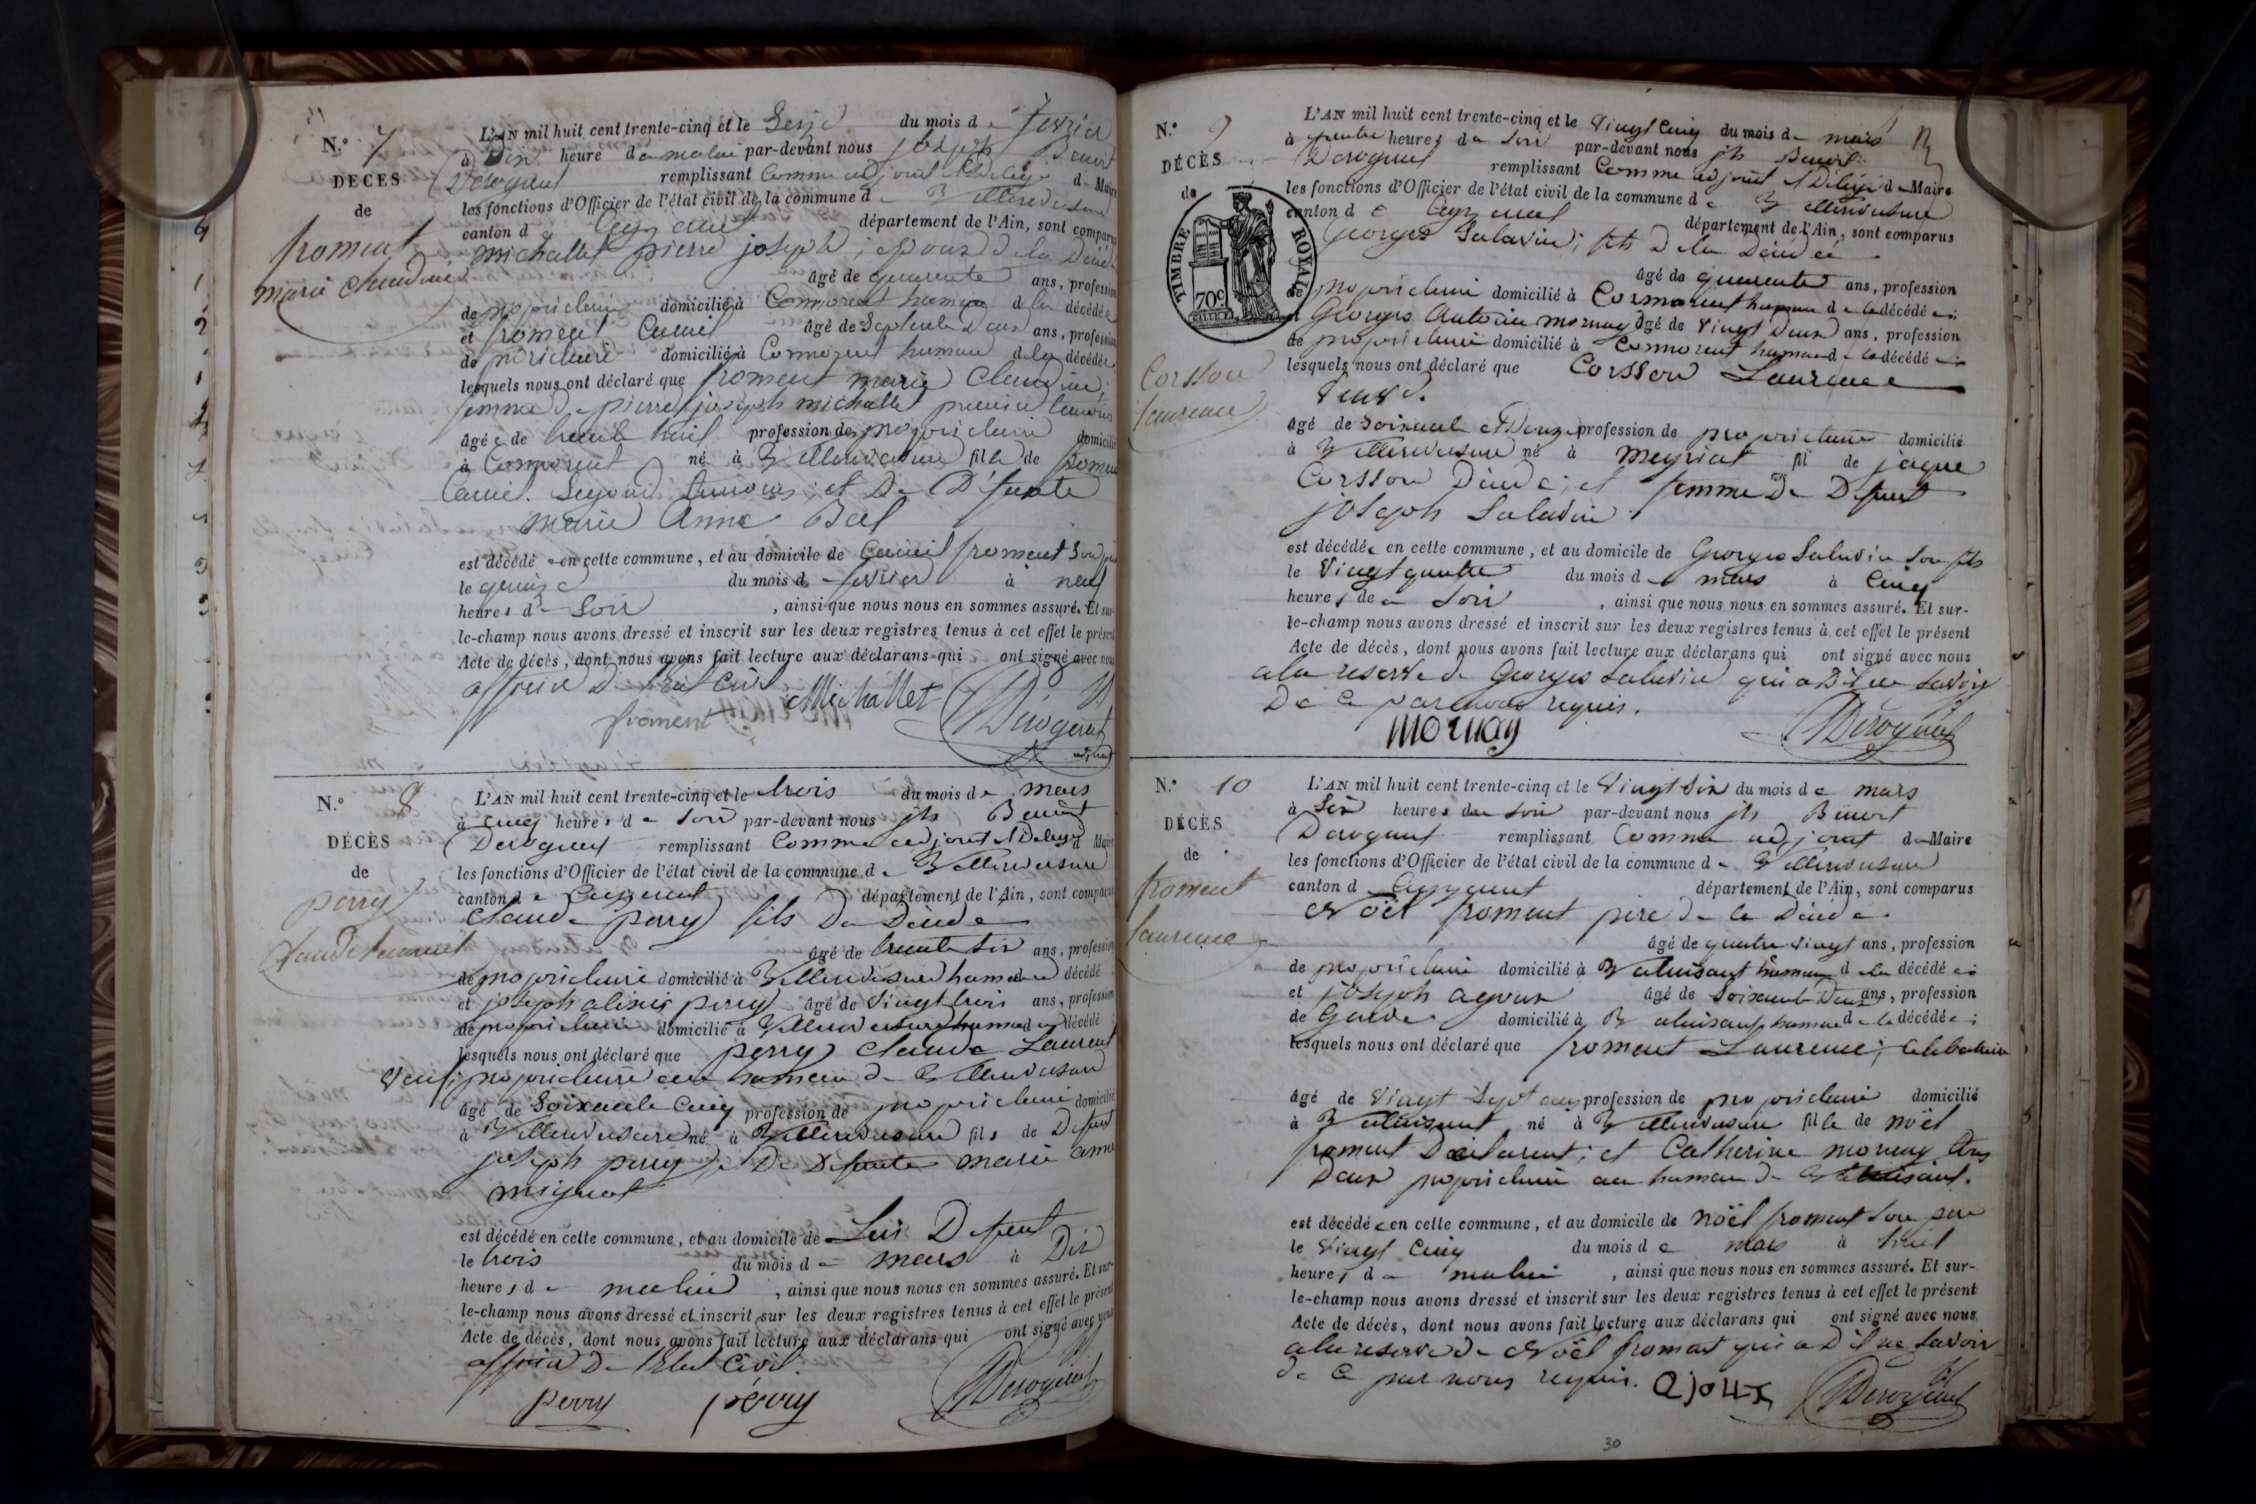 N.° 7
DÉCÈS
de
froment
marie claudine
L'AN mil huit cent trente-cinq et le Seize du mois de fevrier
à Dix heure du matin par-devant nous joseph Benoit
Derognat remplissant comme adjoint Délégué de Maire
les fonctions d'Officier de l'état civil de la commune de Villereversure
canton de Ceyzeriat département de l'Ain, sont comparus
michallet pierre joseph; epoux de la Décédée
âgé de quarente ans, profession
de proprietaire domicilié à Cormorent hameau de la décédée
et froment Camil âgé de Septente Deux ans, profession
de propriétaire domicilié à Cormorent hameau de la décédée
lesquels nous ont déclaré que froment marie claudine;
femme de pierre joseph michallet premier temoins
âgée de trente huit profession de proprietaire domicilié
à Cormorent né à Villereversure fille de froment
Camil. Segond temoins; et De Défunte
marie Anne Bal
est décédée en cette commune, et au domicile de Camil froment Son père
le quinze du mois de fevrier à neuf
heures de Soir, ainsi que nous nous en sommes assuré. Et sur-
le-champ nous avons dressé et inscrit sur les deux registres tenus à cet effet le présent
Acte de décès, dont nous avons fait lecture aux déclarans qui ont signé avec nous
officier De l'Etat Civil
Michallet
froment
Derognat
adjoint
N.° 8
DÉCÈS
de
perry
Claude Laurent
L'AN mil huit cent trente-cinq et le trois du mois de mars
à cinq heures de Soir par-devant nous jh Benoit
Derognat remplissant Comme adjoint Délégué d Maire
les fonctions d'Officier de l'état civil de la commune de Villereversure
canton de Ceyzeriat département de l'Ain, sont comparus
Claude perry fils Du Décédé
âgé de trente Six ans, profession
de proprietaire domicilié à Villereversure hameau du décédé
et joseph alexis perry âgé de Vingt trois ans, profession
de proprietaire domicilié à Villereversure hameau du décédé
lesquels nous ont déclaré que perry Claude Laurent
Veuf; proprietaire au hameau de Villereversure
âgé de Soixante Cinq profession de proprietaire domicilié
à Villereversure né à Villereversure fils de Défunt
joseph perry, et De Défunte marie anne
mignot
est décédé en cette commune, et au domicile de Lui Défunt
le trois du mois de mars à Dix
heures de matin, ainsi que nous nous en sommes assuré. Et sur-
le-champ nous avons dressé et inscrit sur les deux registres tenus à cet effet le présent
Acte de décès, dont nous avons fait lecture aux déclarans qui ont signé avec nous
officier De l'Etat Civil.
perry perry Derognat
N.° 9
DÉCÈS
de
TIMBRE ROYAL
70c
Corsson
Laurence
L'AN mil huit cent trente-cinq et le Vingt Cinq du mois de mars
à quatre heures du Soir par-devant nous jh Benoit
Derognat remplissant Comme adjoint Délégué de Maire
les fonctions d'Officier de l'état civil de la commune de Villereversure
canton de Ceyzeriat département de l'Ain, sont comparus
Georges Saladin; fils De la Décédée
âgé de quarente ans, profession
de proprietaire domicilié à Cormorent hameau de la décédée;
et Georges Antoine mornay âgé de Vingt Deux ans, profession
de proprietaire domicilié à Cormorent hameau de la décédée;
lesquels nous ont déclaré que Corsson Laurence
Veuve.
âgé de Soixante et Douze profession de proprietaire domicilié
à Villereversure né à meyriat fil de jaque
Corsson Décédé; et femme De Defunt
joseph Saladin.
est décédée en cette commune, et au domicile de Georges Saladin Son fils
le Vingt quatre du mois de mars à Cinq
heures de Soir, ainsi que nous nous en sommes assuré. Et sur-
le-champ nous avons dressé et inscrit sur les deux registres tenus à cet effet le présent
Acte de décès, dont nous avons fait lecture aux déclarans qui ont signé avec nous
a la reserve de Georges Saladin qui a Dit ne Savoir
De Ce par nous requis.
mornay Derognat
N.° 10
DÉCÈS
de
froment
Laurence
L'AN mil huit cent trente-cinq et le Vingt Six du mois de mars
à Six heures du Soir par-devant nous jh Benoit
Derognat remplissant Comme adjoint de Maire
les fonctions d'Officier de l'état civil de la commune de Villereversure
canton de Ceyzeriat département de l'Ain, sont comparus
Noël froment pere De la Décédée
âgé de quatre Vingt ans, profession
de proprietaire domicilié à Valuisant hameau de la décédée;
et joseph agoux âgé de Soixante Deux ans, profession
de Garde domicilié à Valuisant hameau de la décédée;
lesquels nous ont déclaré que froment Laurence; celibataire
âgé de Vingt Sept ans profession de proprietaire domicilié
à Valuisant né à Villereversure fille de noël
froment Déclarent; et Catherine mornay tous
Deux proprietaire au hameau de Valuisant.
est décédée en cette commune, et au domicile de noël froment Son pere
le Vingt Cinq du mois de mars à huit
heures de matin, ainsi que nous nous en sommes assuré. Et sur-
le-champ nous avons dressé et inscrit sur les deux registres tenus à cet effet le présent
Acte de décès, dont nous avons fait lecture aux déclarans qui ont signé avec nous
a la reserve de Noël froment qui a Dit ne Savoir
de Ce par nous requis. Derognat
30